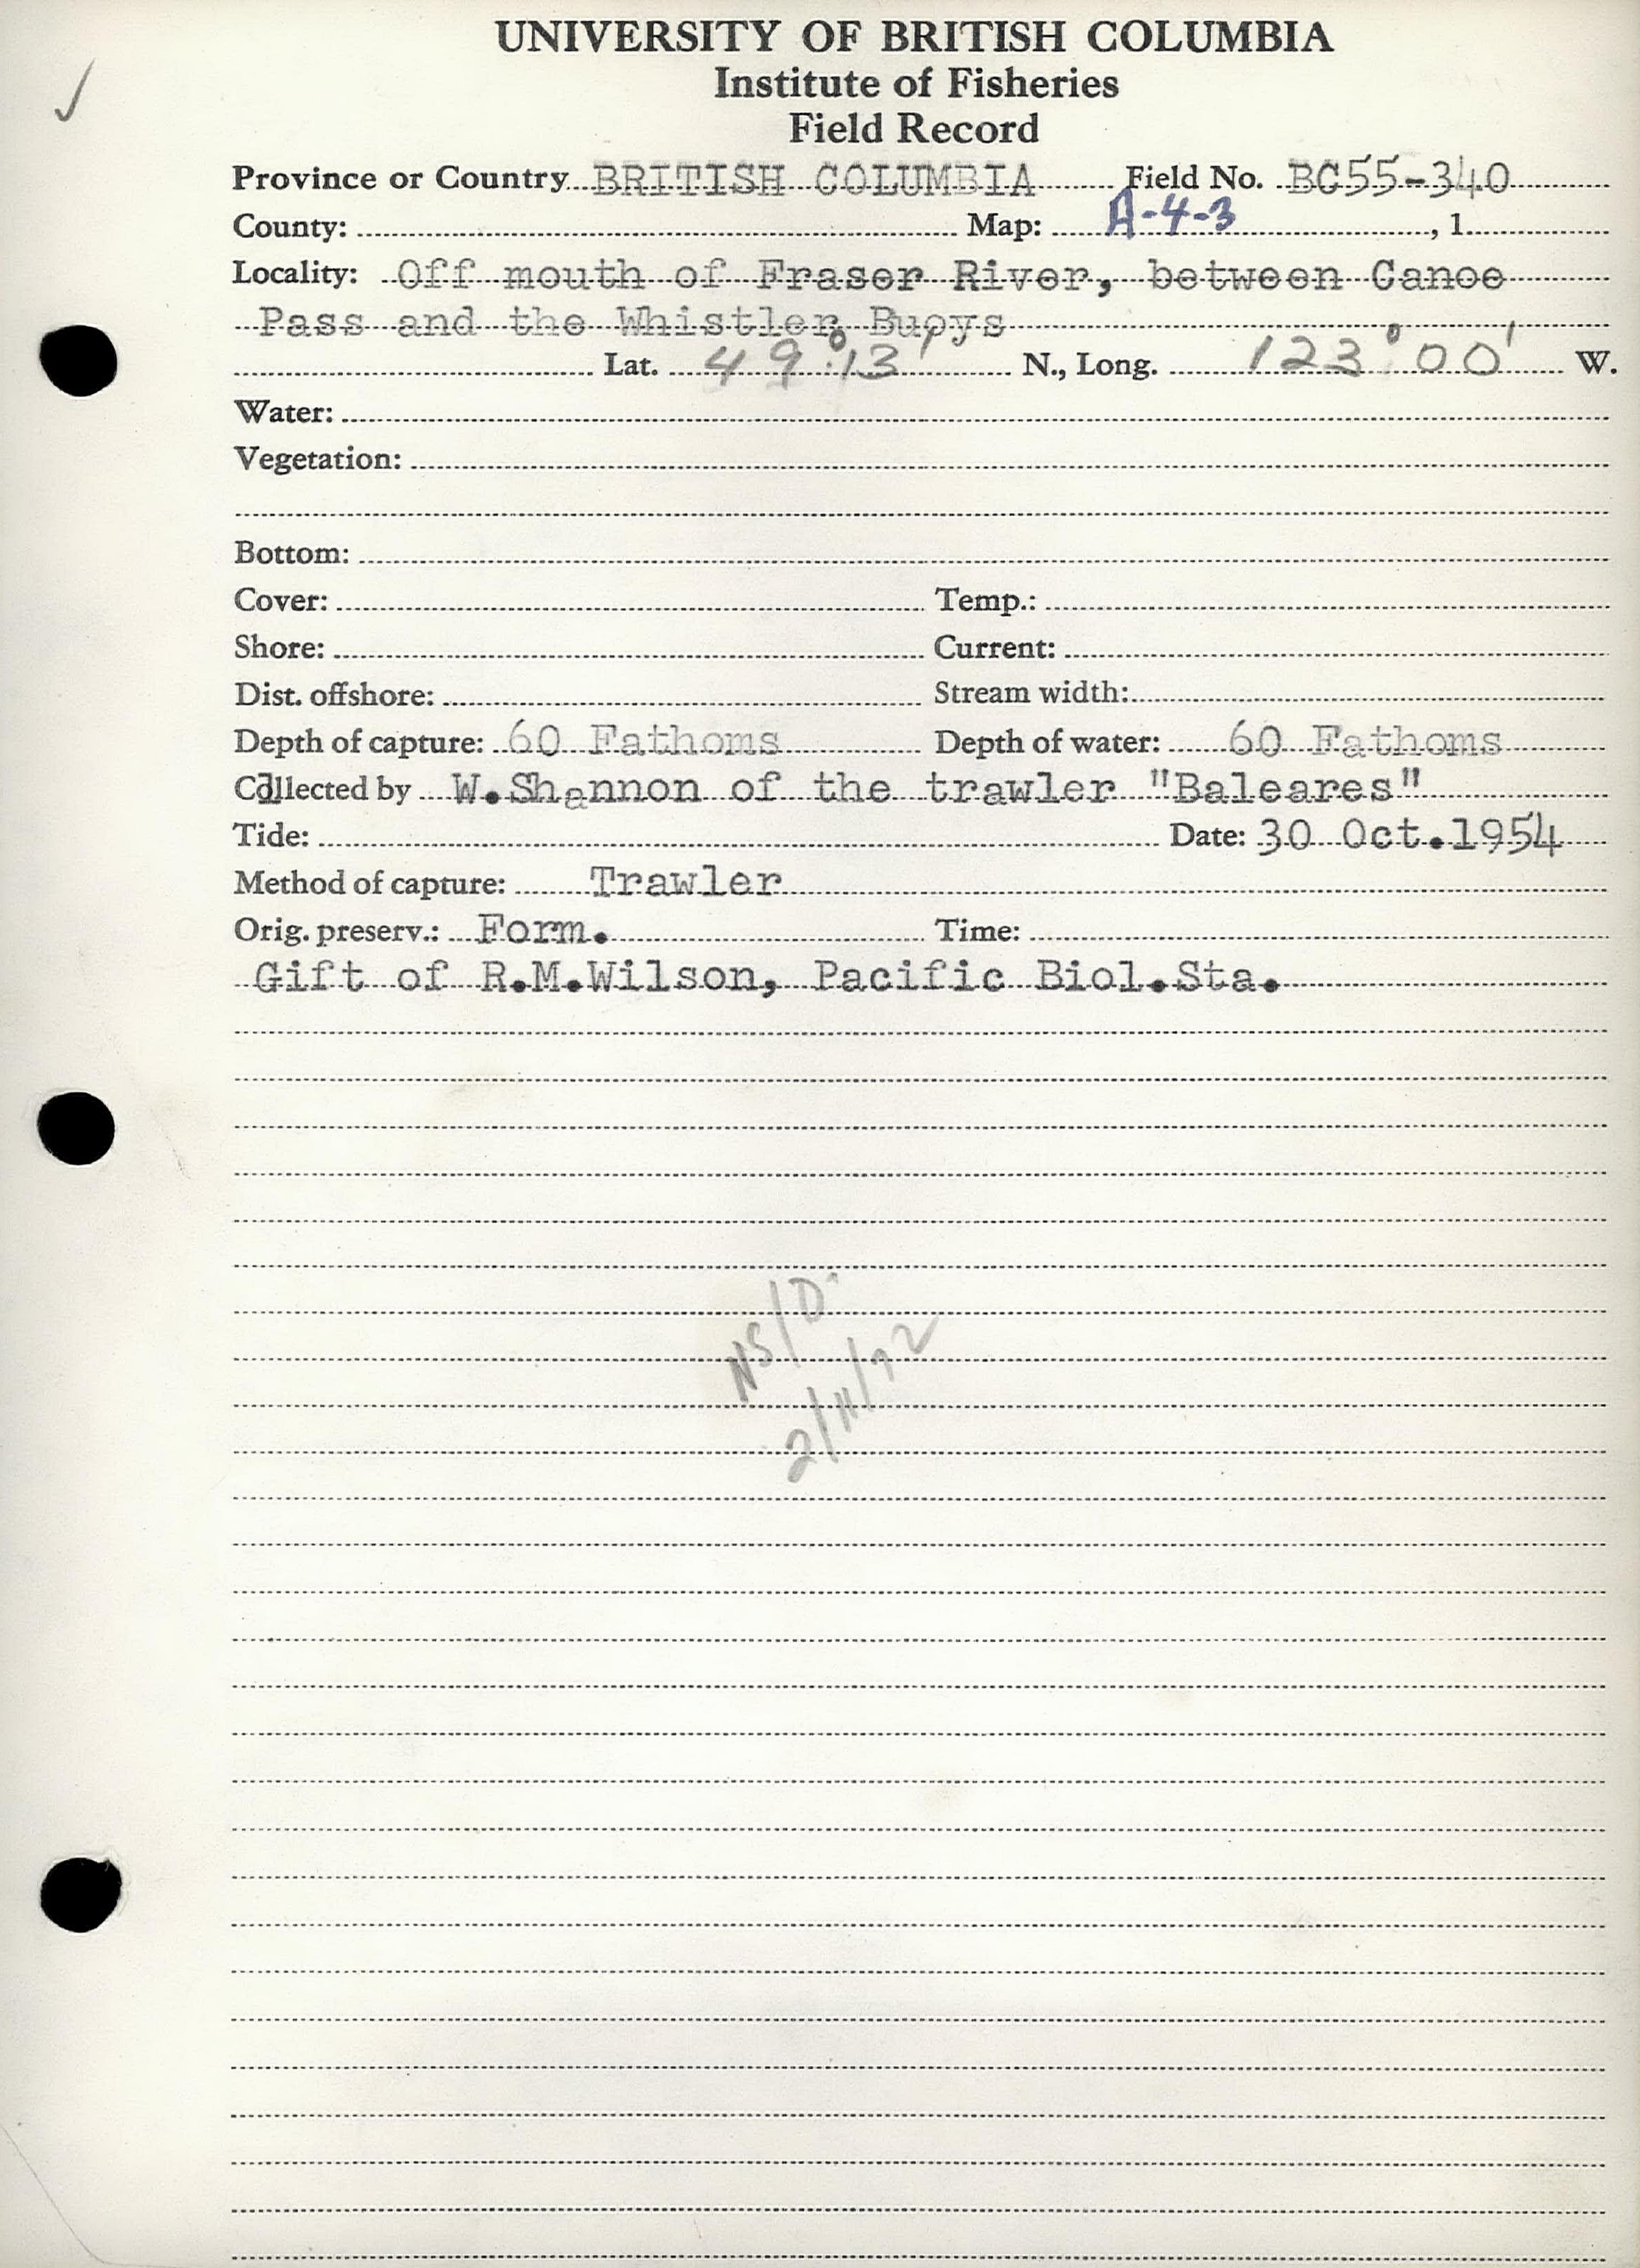 UNIVERSITY OF BRITISH COLUMBIA
Institute of Fisheries
Field Record
Province or Country BRITISH COLUMBIA Field No. BC55-340
County: Map: A-4-3 , 1
Locality: Off mouth of Fraser River, between Canoe
Pass and the Whistler Buoys
Lat. 49° 13' N., Long. 123° 00' W.
Water:
Vegetation:
Bottom:
Cover: Temp.:
Shore: Current:
Dist. offshore: Stream width:
Depth of capture: 60 Fathoms Depth of water: 60 Fathoms
Collected by W.Shannon of the trawler "Baleares"
Tide: Date: 30 Oct.1954
Method of capture: Trawler
Orig. preserv.: Form. Time:
Gift of R.M.Wilson, Pacific Biol.Sta.
NS/D
2/11/72